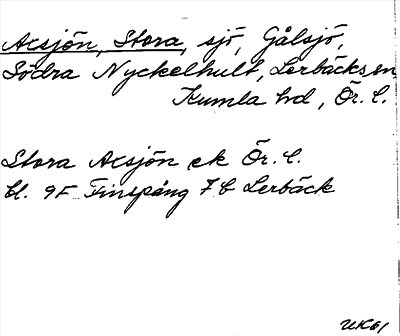 Acsjön, Stora, sjö, Gålsjö,
Södra Nyckelhult, Lerbäcks sn,
Kumla hd, Ör. l.
Stora Acsjön ek Ör. l.
bl. 9F Finspång 7b Lerbäck
UK61